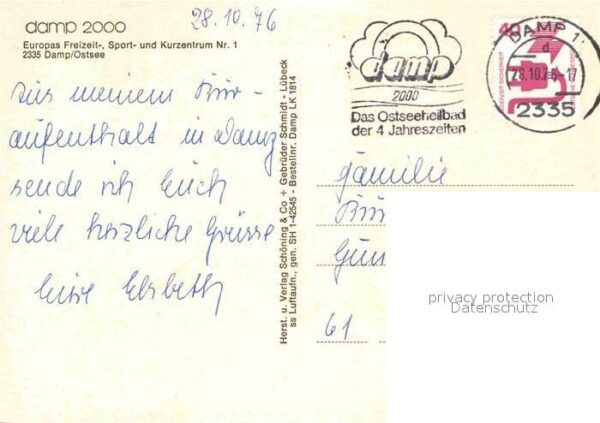 damp 2000
Europas Freizeit-, Sport- und Kurzentrum Nr. 1
2335 Damp/Ostsee
28.10.76
Aus meinem Kur-
aufenthalt in Damp
sende ich Euch
viele herzliche Grüsse
Eure Elsbeth
Herst. u. Verlag Schöning & Co + Gebrüder Schmidt · Lübeck
ss Luftaufn., gen. SH 1-42545 - Bestellnr. Damp LK 1814
damp
2000
Das Ostseeheilbad
der 4 Jahreszeiten
DAMP 1
d
28.10.76-17
2335
40
Familie
61
privacy protection
Datenschutz